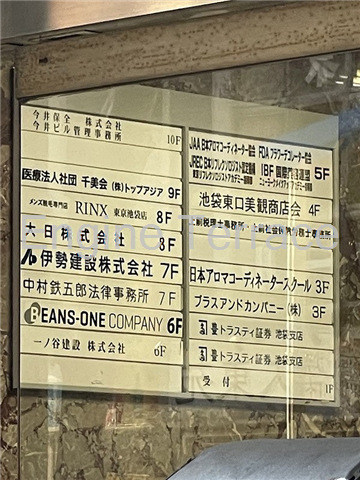 今井保全 株式会社
今井ビル管理事務所 10F
医療法人社団 千美会 (株)トップアジア 9F
メンズ脱毛専門店 RINX 東京池袋店 8F
大日株式会社 8F
伊勢建設株式会社 7F
中村鉄五郎法律事務所 7F
BEANS-ONE COMPANY 6F
一ノ谷建設 株式会社 6F
JAA日本アロマコーディネーター協会 FDA フラワーデコレーター協会
JREC日本リフレクソロジスト認定機構 IBF 国際美容連盟 5F
池袋東口美観商店会 4F
日本アロマコーディネータースクール 3F
プラスアンドカンパニー(株) 3F
トラスティ証券 池袋支店
トラスティ証券 池袋支店
受付 1F
Engine Terrace